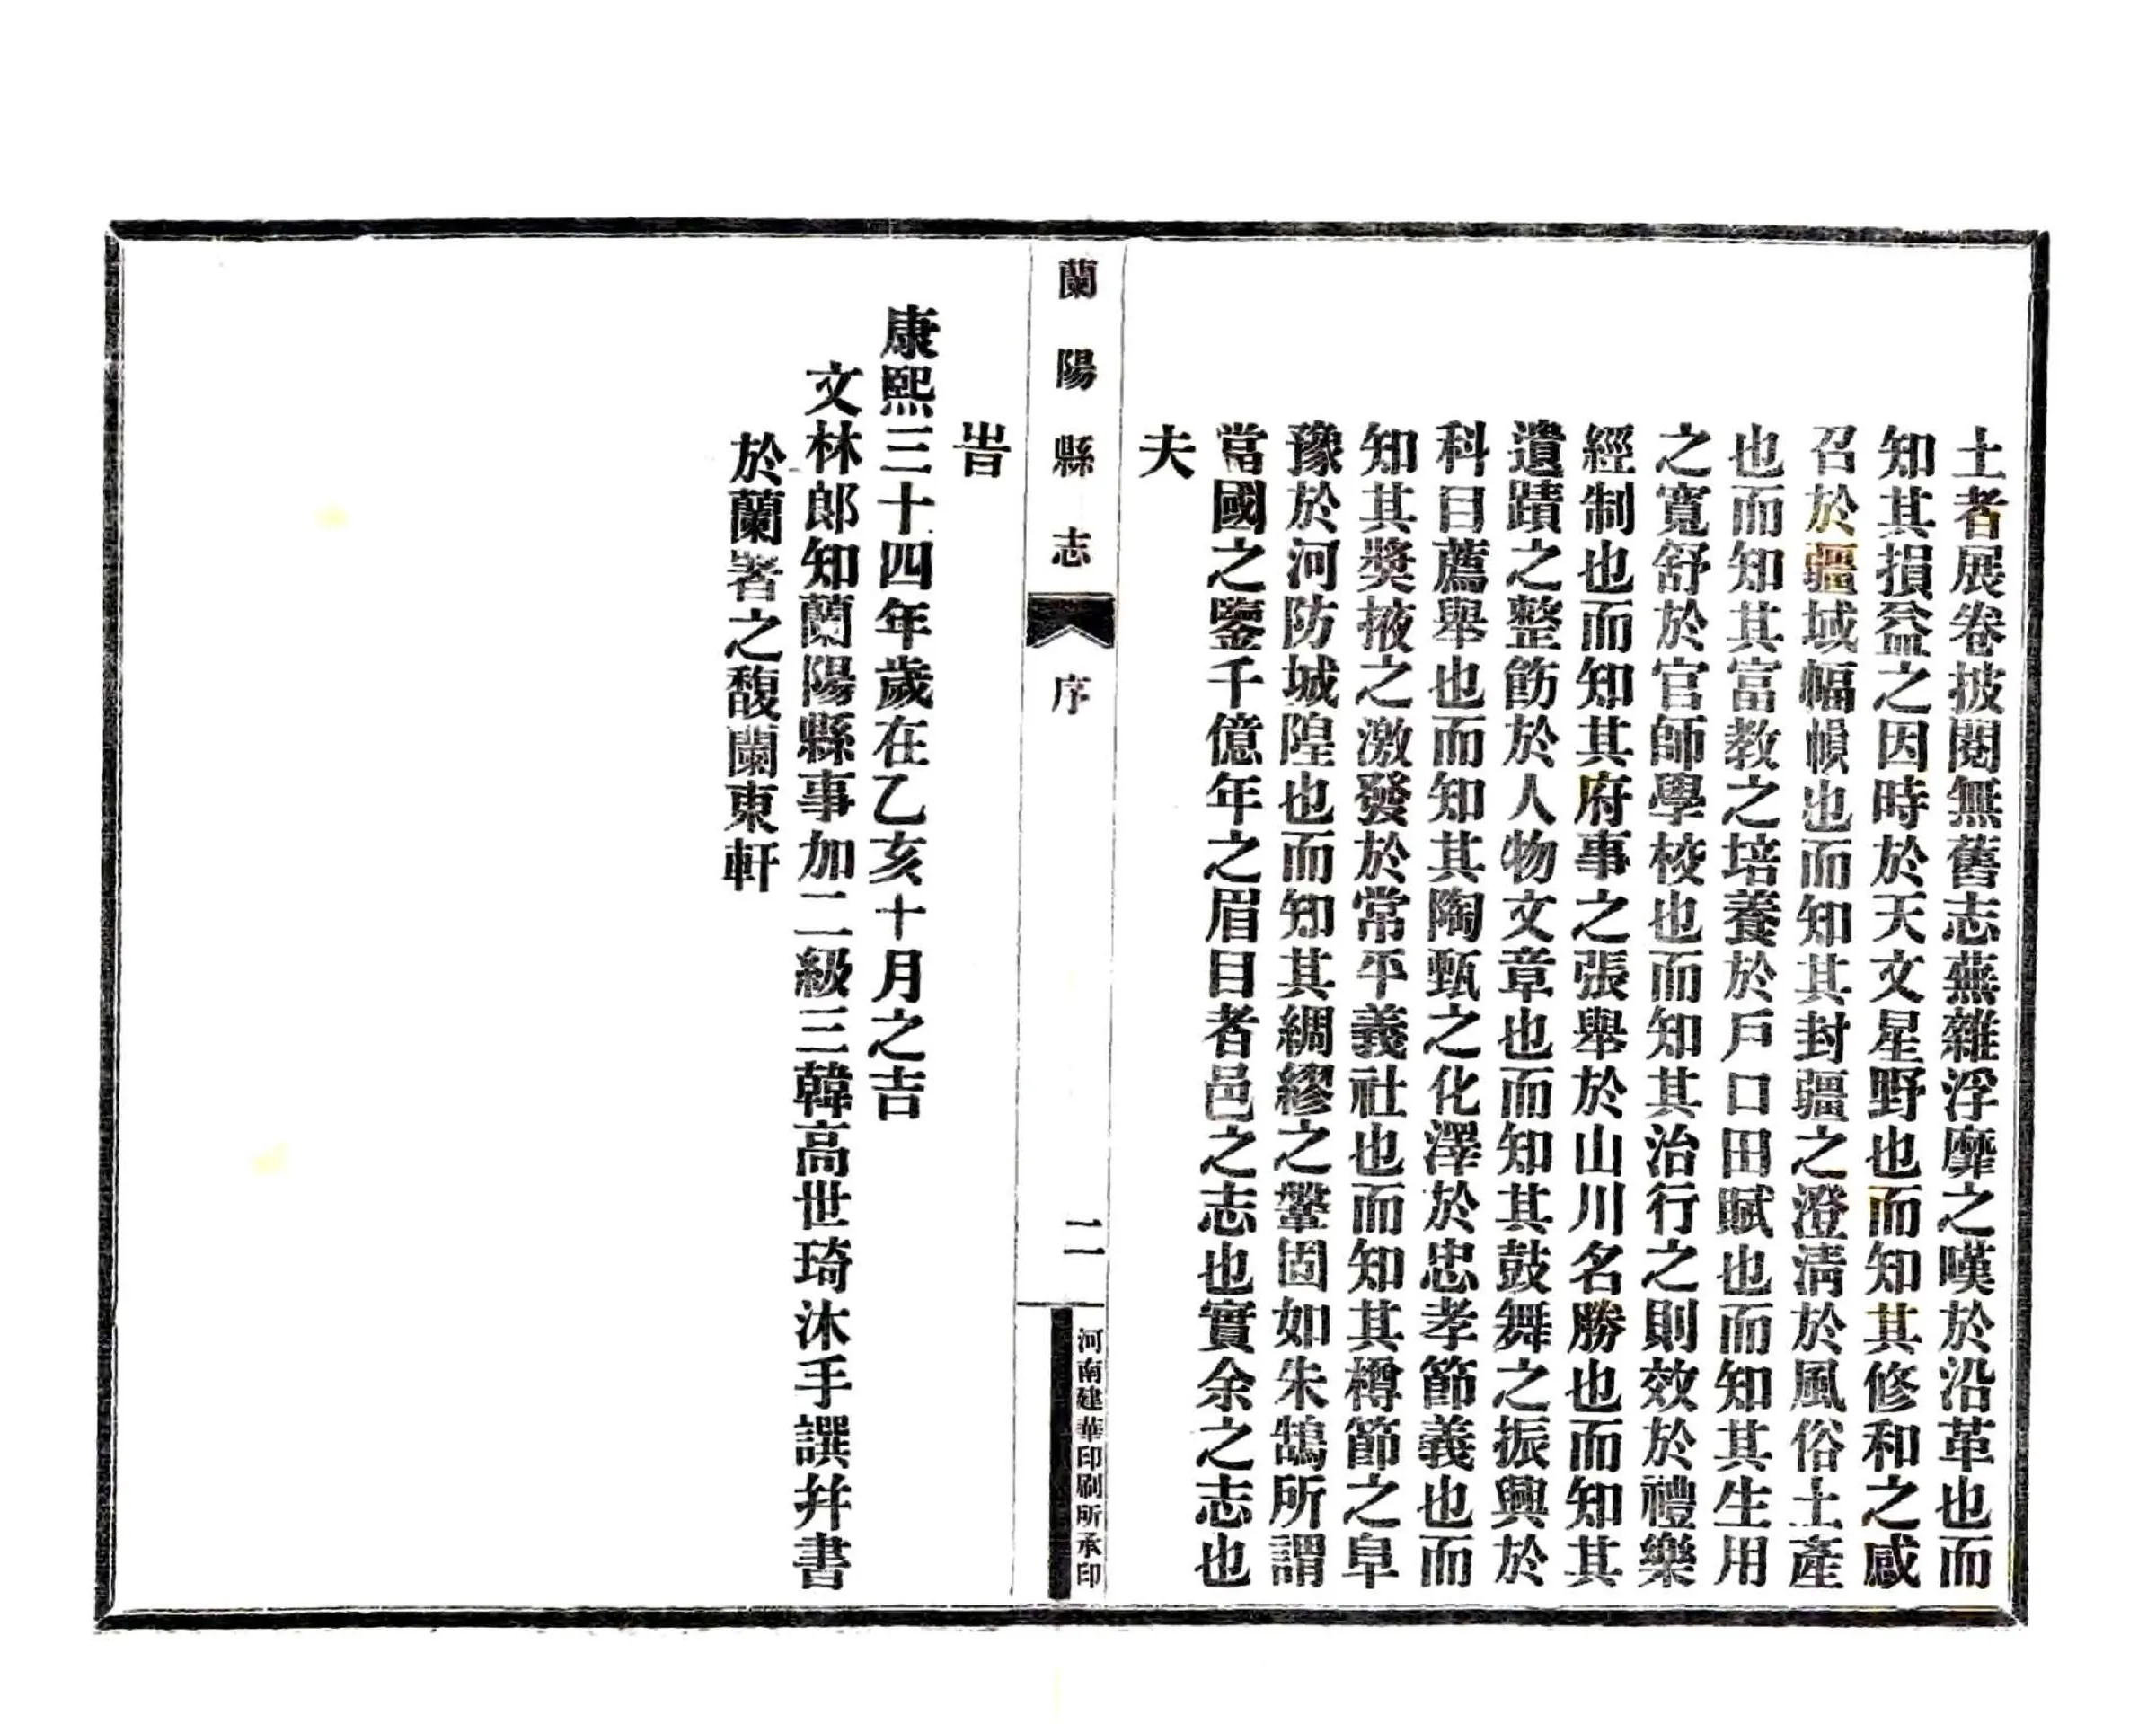 土者展卷披閱無舊志蕪雜浮靡之嘆於沿革也而
知其損益之因時於天文星野也而知其修和之感
召於疆域幅幀也而知其封疆之澄淸於風俗土產
也而知其富教之培養於戶口田賦也而知其生用
之寬舒於官師學校也而知其治行之則效於禮樂
經制也而知其府事之張舉於山川名勝也而知其
遺蹟之整飭於人物文章也而知其鼓舞之振興於
科目薦舉也而知其陶甄之化澤於忠孝節義也而
知其獎掖之激發於常平義社也而知其樽節之阜
豫於河防城隍也而知其綢繆之鞏固如朱鵠所謂
當國之鑒千億年之眉目者邑之志也實余之志也
夫
蘭陽縣志
序
二
河南建華印刷所承印
旹
康熙三十四年歲在乙亥十月之吉
文林郎知蘭陽縣事加二級三韓高世琦沐手譔幷書
於蘭署之馥蘭東軒